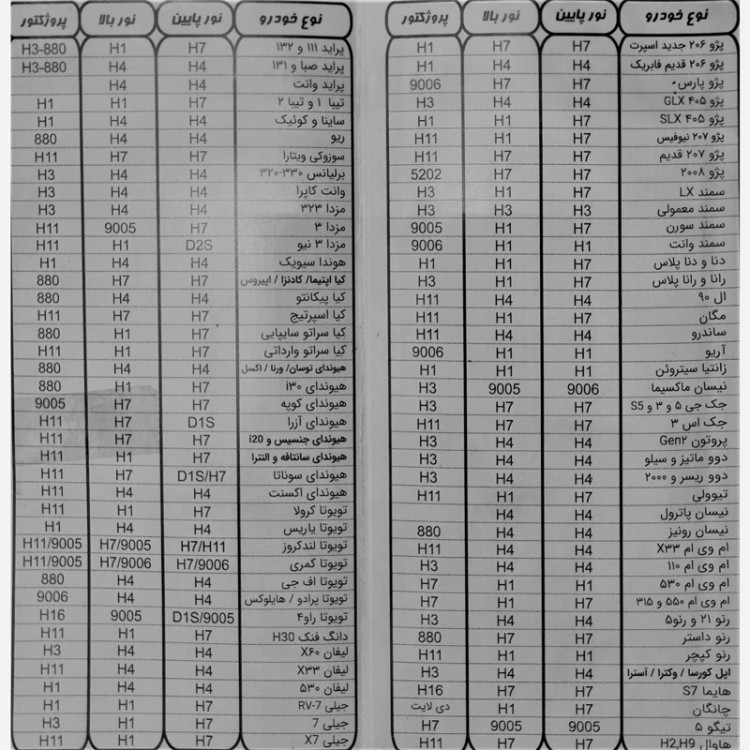 نوع خودرو نور پایین نور بالا پروژکتور
پژو ۲۰۶ جدید اسپرت H7 H7 H1
پژو ۲۰۶ قدیم فابریک H4 H4 H1
پژو پارس H7 H7 9006
پژو ۴۰۵ GLX H4 H4 H3
پژو ۴۰۵ SLX H7 H1 H1
پژو ۲۰۷ نیوفیس H7 H1 H11
پژو ۲۰۷ قدیم H7 H7 H11
پژو ۲۰۰۸ H7 H7 5202
سمند LX H7 H1 H3
سمند معمولی H3 H3 H3
سمند سورن H7 H1 9005
سمند وانت H1 H1 9006
دنا و دنا پلاس H7 H1 H1
رانا و رانا پلاس H7 H1 H3
ال ۹۰ H4 H4 H11
مگان H7 H1 H11
ساندرو H4 H4 H11
آریو H1 H1 9006
زانتیا سیتروئن H1 H1 H1
نیسان ماکسیما 9006 9005 H3
جک جی ۵ و ۳ و S5 H7 H7 H3
جک اس ۳ H7 H7 H11
پروتون Gen۲ H4 H4 H3
دوو ماتیز و سیلو H4 H4 H3
دوو ریسر و ۲۰۰۰ H4 H4 H3
تیوولی H7 H1 H11
نیسان پاترول H4 H4
نیسان رونیز H4 H4 880
ام وی ام X۳۳ H4 H4 H11
ام وی ام ۱۱۰ H4 H4 H3
ام وی ام ۵۳۰ H7 H1 H7
ام وی ام ۵۵۰ و ۳۱۵ H7 H1 H7
رنو ۲۱ و رنو۵ H4 H4 H3
رنو داستر H7 H7 880
رنو کپچر H1 H1 H11
اپل کورسا / وکترا / آسترا H4 H4 H3
هایما S7 H7 H7 H16
چانگان H7 H1 دی لایت
تیگو ۵ 9005 9005 H7
هاوال H2,H9 H7 H7 H11
نوع خودرو نور پایین نور بالا پروژکتور
پراید ۱۱۱ و ۱۳۲ H7 H1 H3-880
پراید صبا و ۱۳۱ H4 H4 H3-880
پراید وانت H4 H4
تیبا ۱ و تیبا ۲ H7 H1 H1
ساینا و کوئیک H4 H4 H1
ریو H4 H4 880
سوزوکی ویتارا H7 H7 H11
برلیانس ۳۳۰-۳۲۰ H4 H4 H3
وانت کاپرا H4 H4 H3
مزدا ۳۲۳ H4 H4 H3
مزدا ۳ H7 9005 H11
مزدا ۳ نیو D2S H1 H11
هوندا سیویک H4 H4 H1
کیا اپتیما/ کادنزا / اپیروس H7 H7 880
کیا پیکانتو H4 H4 880
کیا اسپرتیج H7 H7 H11
کیا سراتو سایپایی H7 H1 880
کیا سراتو وارداتی H7 H1 H11
هیوندای توسان/ ورنا / اکسل H4 H4 880
هیوندای i۳۰ H7 H1 880
هیوندای کوپه H7 H7 9005
هیوندای آزرا D1S H7 H11
هیوندای جنسیس و i20 H7 H7 H11
هیوندای سانتافه و النترا H7 H1 H11
هیوندای سوناتا D1S/H7 H7 H11
هیوندای اکسنت H4 H4 H11
تویوتا کرولا H7 H1 H11
تویوتا یاریس H4 H4 H1
تویوتا لندکروز H7/H11 H7/9005 H11/9005
تویوتا کمری H7/9006 H7/9006 H11/9005
تویوتا اف جی H4 H4 880
تویوتا پرادو / هایلوکس H4 H4 9006
تویوتا راو۴ D1S/9005 9005 H16
دانگ فنگ H30 H7 H1 H11
لیفان X۶۰ H4 H4 H3
لیفان X۳۳ H4 H4 H11
لیفان ۵۳۰ H4 H4 H1
جیلی RV-7 H7 H1 H1
جیلی 7 H7 H1 H3
جیلی X7 H7 H1 H11